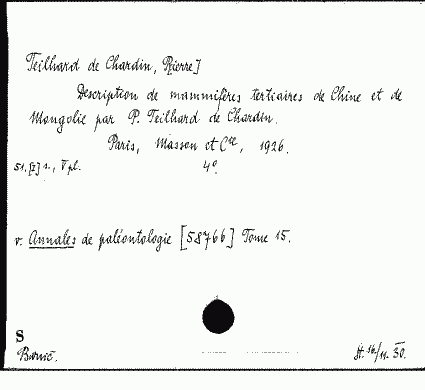 Teilhard de Chardin, P[ierre]
Description de mammifères tertiaires de Chine et de
Mongolie par P. Teilhard de Chardin.
Paris, Masson et Cie, 1926.
51, [I] s., V pl. 4º.
v. Annales de paléontologie [58766] Tome 15.
S
30.